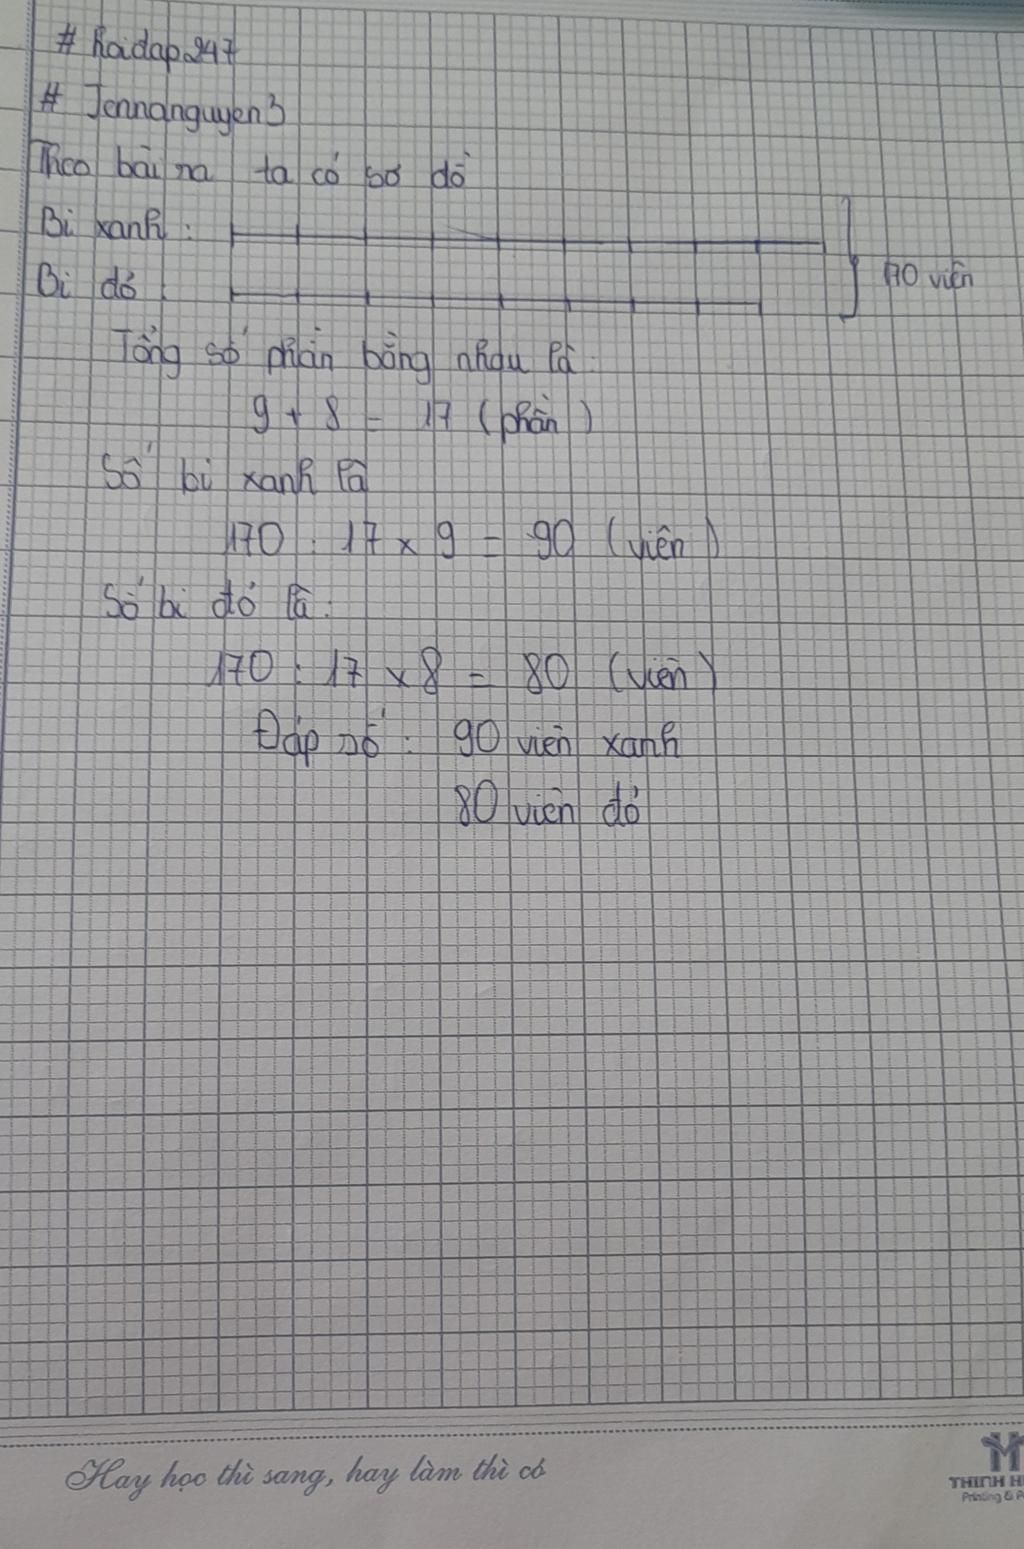 # Hoidap247
# Jennanguyen3
Theo bài ra ta có sơ đồ
Bi xanh :
Bi đỏ :
170 viên
Tổng số phần bằng nhau là :
9 + 8 = 17 (phần)
Số bi xanh là
170 : 17 x 9 = 90 (viên)
Số bi đỏ là :
170 : 17 x 8 = 80 (viên)
Đáp số : 90 viên xanh
80 viên đỏ
Hay học thì sang, hay làm thì có
Printing &